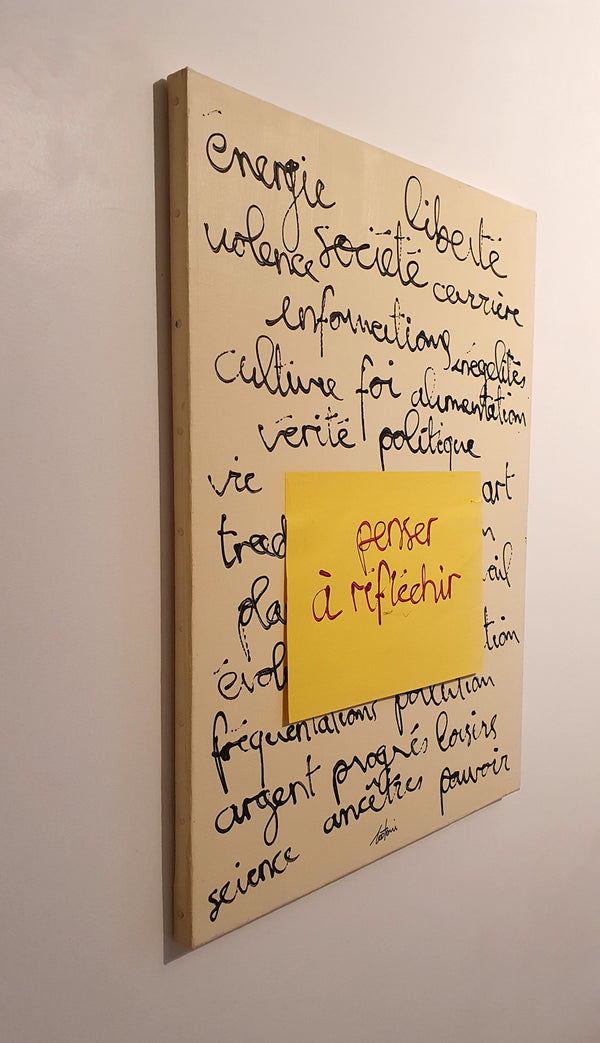 énergie liberté
violence société carrière
informations inégalités
culture foi alimentation
vérité politique
vie art
trad
penser
à réfléchir
pla ail
évol tion
fréquentations pollution
argent progrès loisirs
science ancêtres pouvoir